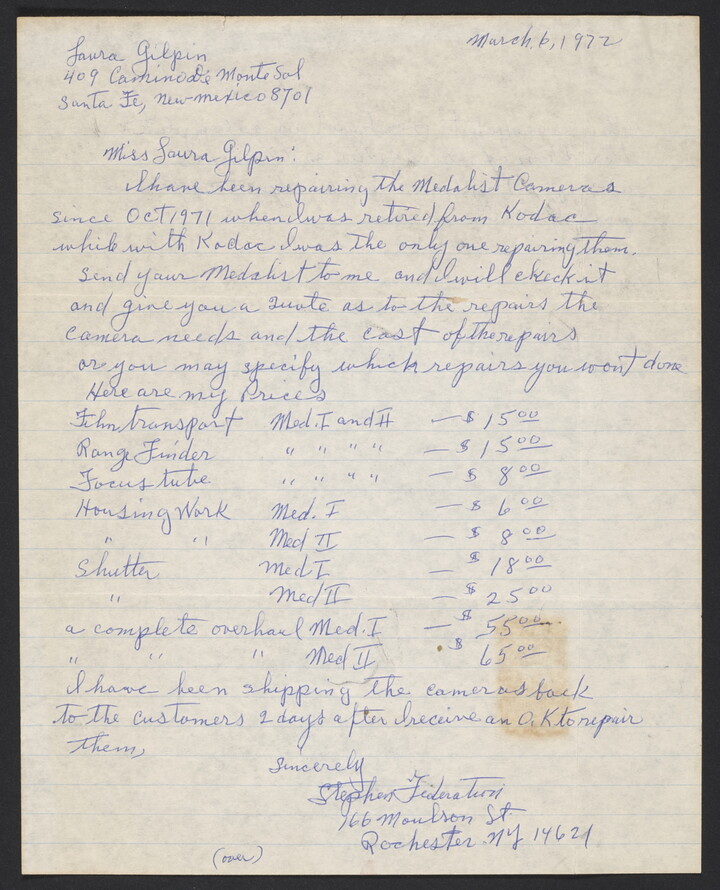 March. 6, 1972
Laura Gilpin
409 Camino de Monte Sol
Santa Fe, New-mexico 8701
Miss Laura Gilpin:
I have been repairing the Medalist Cameras
since Oct 1971 when I was retired from Kodac
while with Kodac I was the only one repairing them.
Send your Medalist to me and I will check it
and give you a quote as to the repairs the
camera needs and the cost of the repairs
or you may specify which repairs you want done
Here are my Prices
Film transport Med. I and II — $ 15 00
Range Finder " " " " — $ 15 00
Focus tube " " " " — $ 8 00
Housing Work Med. I — $ 6 00
" " Med II — $ 8 00
Shutter Med I — $ 18 00
" Med II — $ 25 00
a complete overhaul Med. I — $ 55 00
" " " Med II $ 65 00
I have been shipping the cameras back
to the customers 2 days after I receive an O.K to repair
them,
Sincerely
Stephen Fideration
166 Moulson St
Rochester NY 14621
(over)